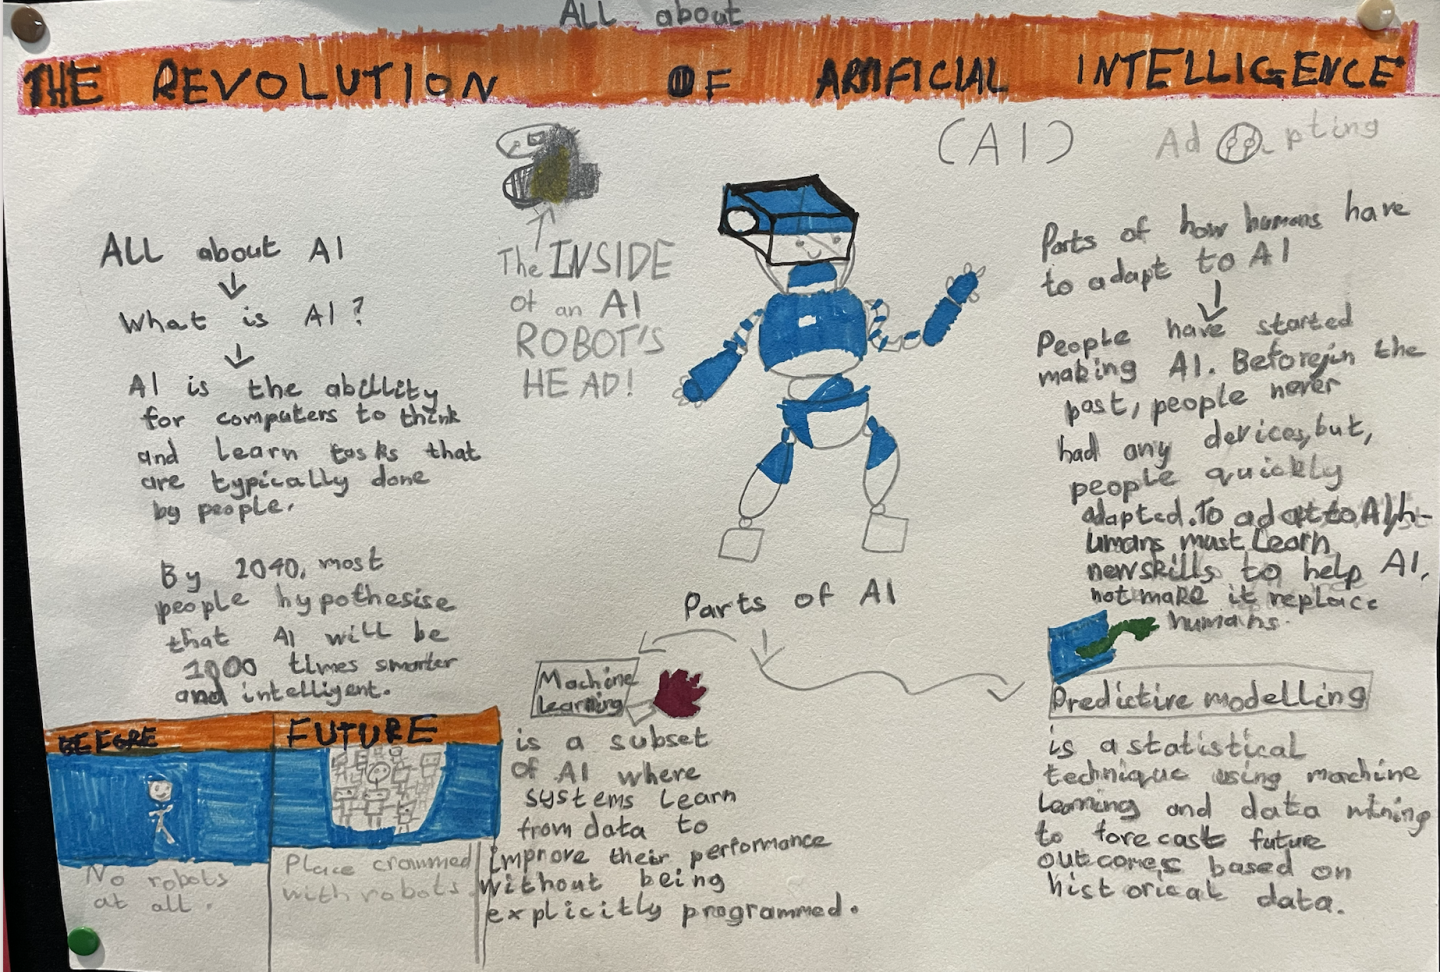 ALL about
THE REVOLUTION OF ARTIFICIAL INTELLIGENCE
(AI)
Adapting
ALL about AI
What is AI?
AI is the abillity
for computers to think
and learn tasks that
are typically done
by people.
By 2040, most
people hypothesise
that AI will be
1000 times smarter
and intelligent.
BEFORE
No robots
at all.
FUTURE
Place crammed
with robots.
The INSIDE
of an AI
ROBOT'S
HEAD!
Parts of AI
Machine
learning
is a subset
of AI where
systems learn
from data to
improve their performance
without being
explicitly programmed.
Parts of how humans have
to adapt to AI
People have started
making AI. Before, in the
past, people never
had any devices, but,
people quickly
adapted. To adapt to AI, h-
umans must learn
new skills to help AI,
not make it replace
humans.
Predictive modelling
is a statistical
technique using machine
learning and data mining
to forecast future
outcomes based on
historical data.